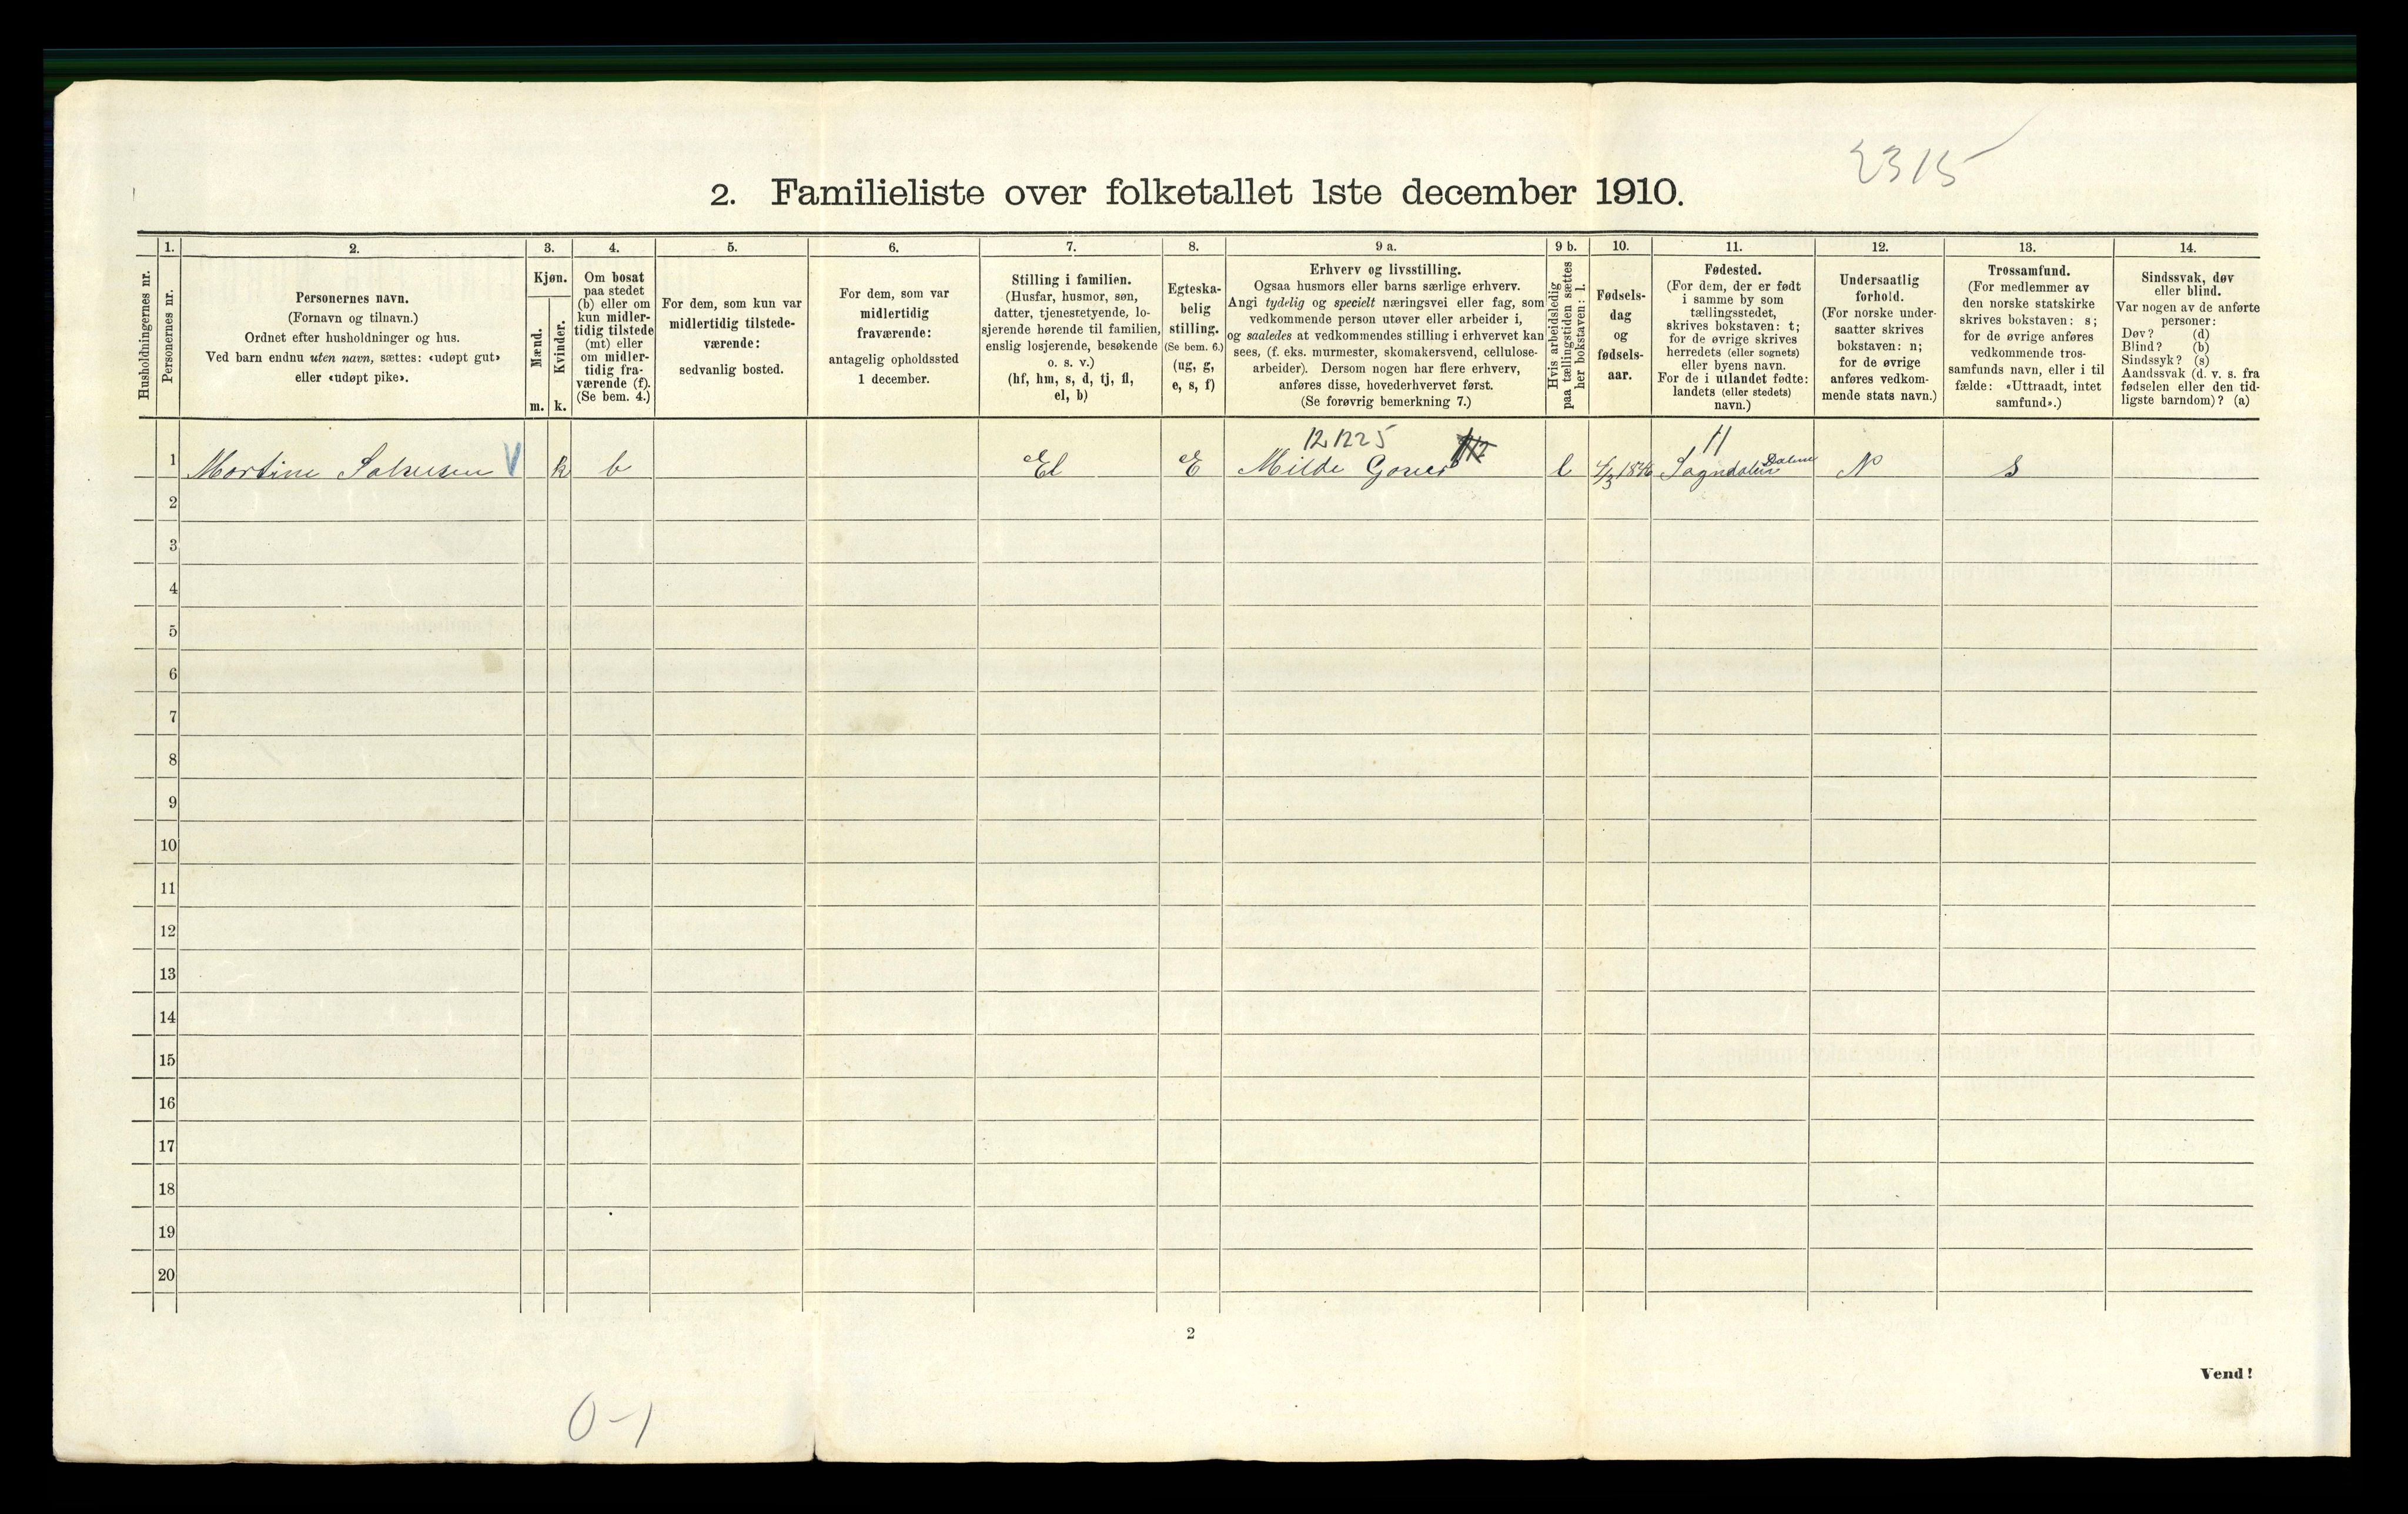 2315
2. Familieliste over folketallet 1ste december 1910.
Husholdningernes nr.
1.
Personernes nr.
2.
Personernes navn.
(Fornavn og tilnavn.)
Ordnet efter husholdninger og hus.
Ved barn endnu uten navn, sættes: «udøpt gut»
eller «udøpt pike».
3.
Kjøn.
Mænd.
Kvinder.
m.
k.
4.
Om bosat
paa stedet
(b) eller om
kun midler-
tidig tilstede
(mt) eller
om midler-
tidig fra-
værende (f).
(Se bem. 4.)
5.
For dem, som kun var
midlertidig tilstede-
værende:
sedvanlig bosted.
6.
For dem, som var
midlertidig
fraværende:
antagelig opholdssted
1 december.
7.
Stilling i familien.
(Husfar, husmor, søn,
datter, tjenestetyende, lo-
sjerende hørende til familien,
enslig losjerende, besøkende
o. s. v.)
(hf, hm, s, d, tj, fl,
el, b)
8.
Egteska-
belig
stilling.
(Se bem. 6.)
(ug, g,
e, s, f)
9 a.
Erhverv og livsstilling.
Ogsaa husmors eller barns særlige erhverv.
Angi tydelig og specielt næringsvei eller fag, som
vedkommende person utøver eller arbeider i,
og saaledes at vedkommendes stilling i erhvervet kan
sees, (f. eks. murmester, skomakersvend, cellulose-
arbeider). Dersom nogen har flere erhverv,
anføres disse, hovederhvervet først.
(Se forøvrig bemerkning 7.)
9 b.
Hvis arbeidsledig
paa tællingstiden sættes
her bokstaven: l.
10.
Fødsels-
dag
og
fødsels-
aar.
11.
Fødested.
(For dem, der er født
i samme by som
tællingsstedet,
skrives bokstaven: t;
for de øvrige skrives
herredets (eller sognets)
eller byens navn.
For de i utlandet fødte:
landets (eller stedets)
navn.)
12.
Undersaatlig
forhold.
(For norske under-
saatter skrives
bokstaven: n;
for de øvrige
anføres vedkom-
mende stats navn.)
13.
Trossamfund.
(For medlemmer av
den norske statskirke
skrives bokstaven: s;
for de øvrige anføres
vedkommende tros-
samfunds navn, eller i til
fælde: «Uttraadt, intet
samfund».)
14.
Sindssvak, døv
eller blind.
Var nogen av de anførte
personer:
Døv? (d)
Blind? (b)
Sindssyk? (s)
Aandssvak (d. v. s. fra
fødselen eller den tid-
ligste barndom)? (a)
12 1225
11
1 Martine V k b El E Milde Gover l 1846 Sogndalen N S
2
3
4
5
6
7
8
9
10
11
12
13
14
15
16
17
18
19
20
2
Vend!
0-1